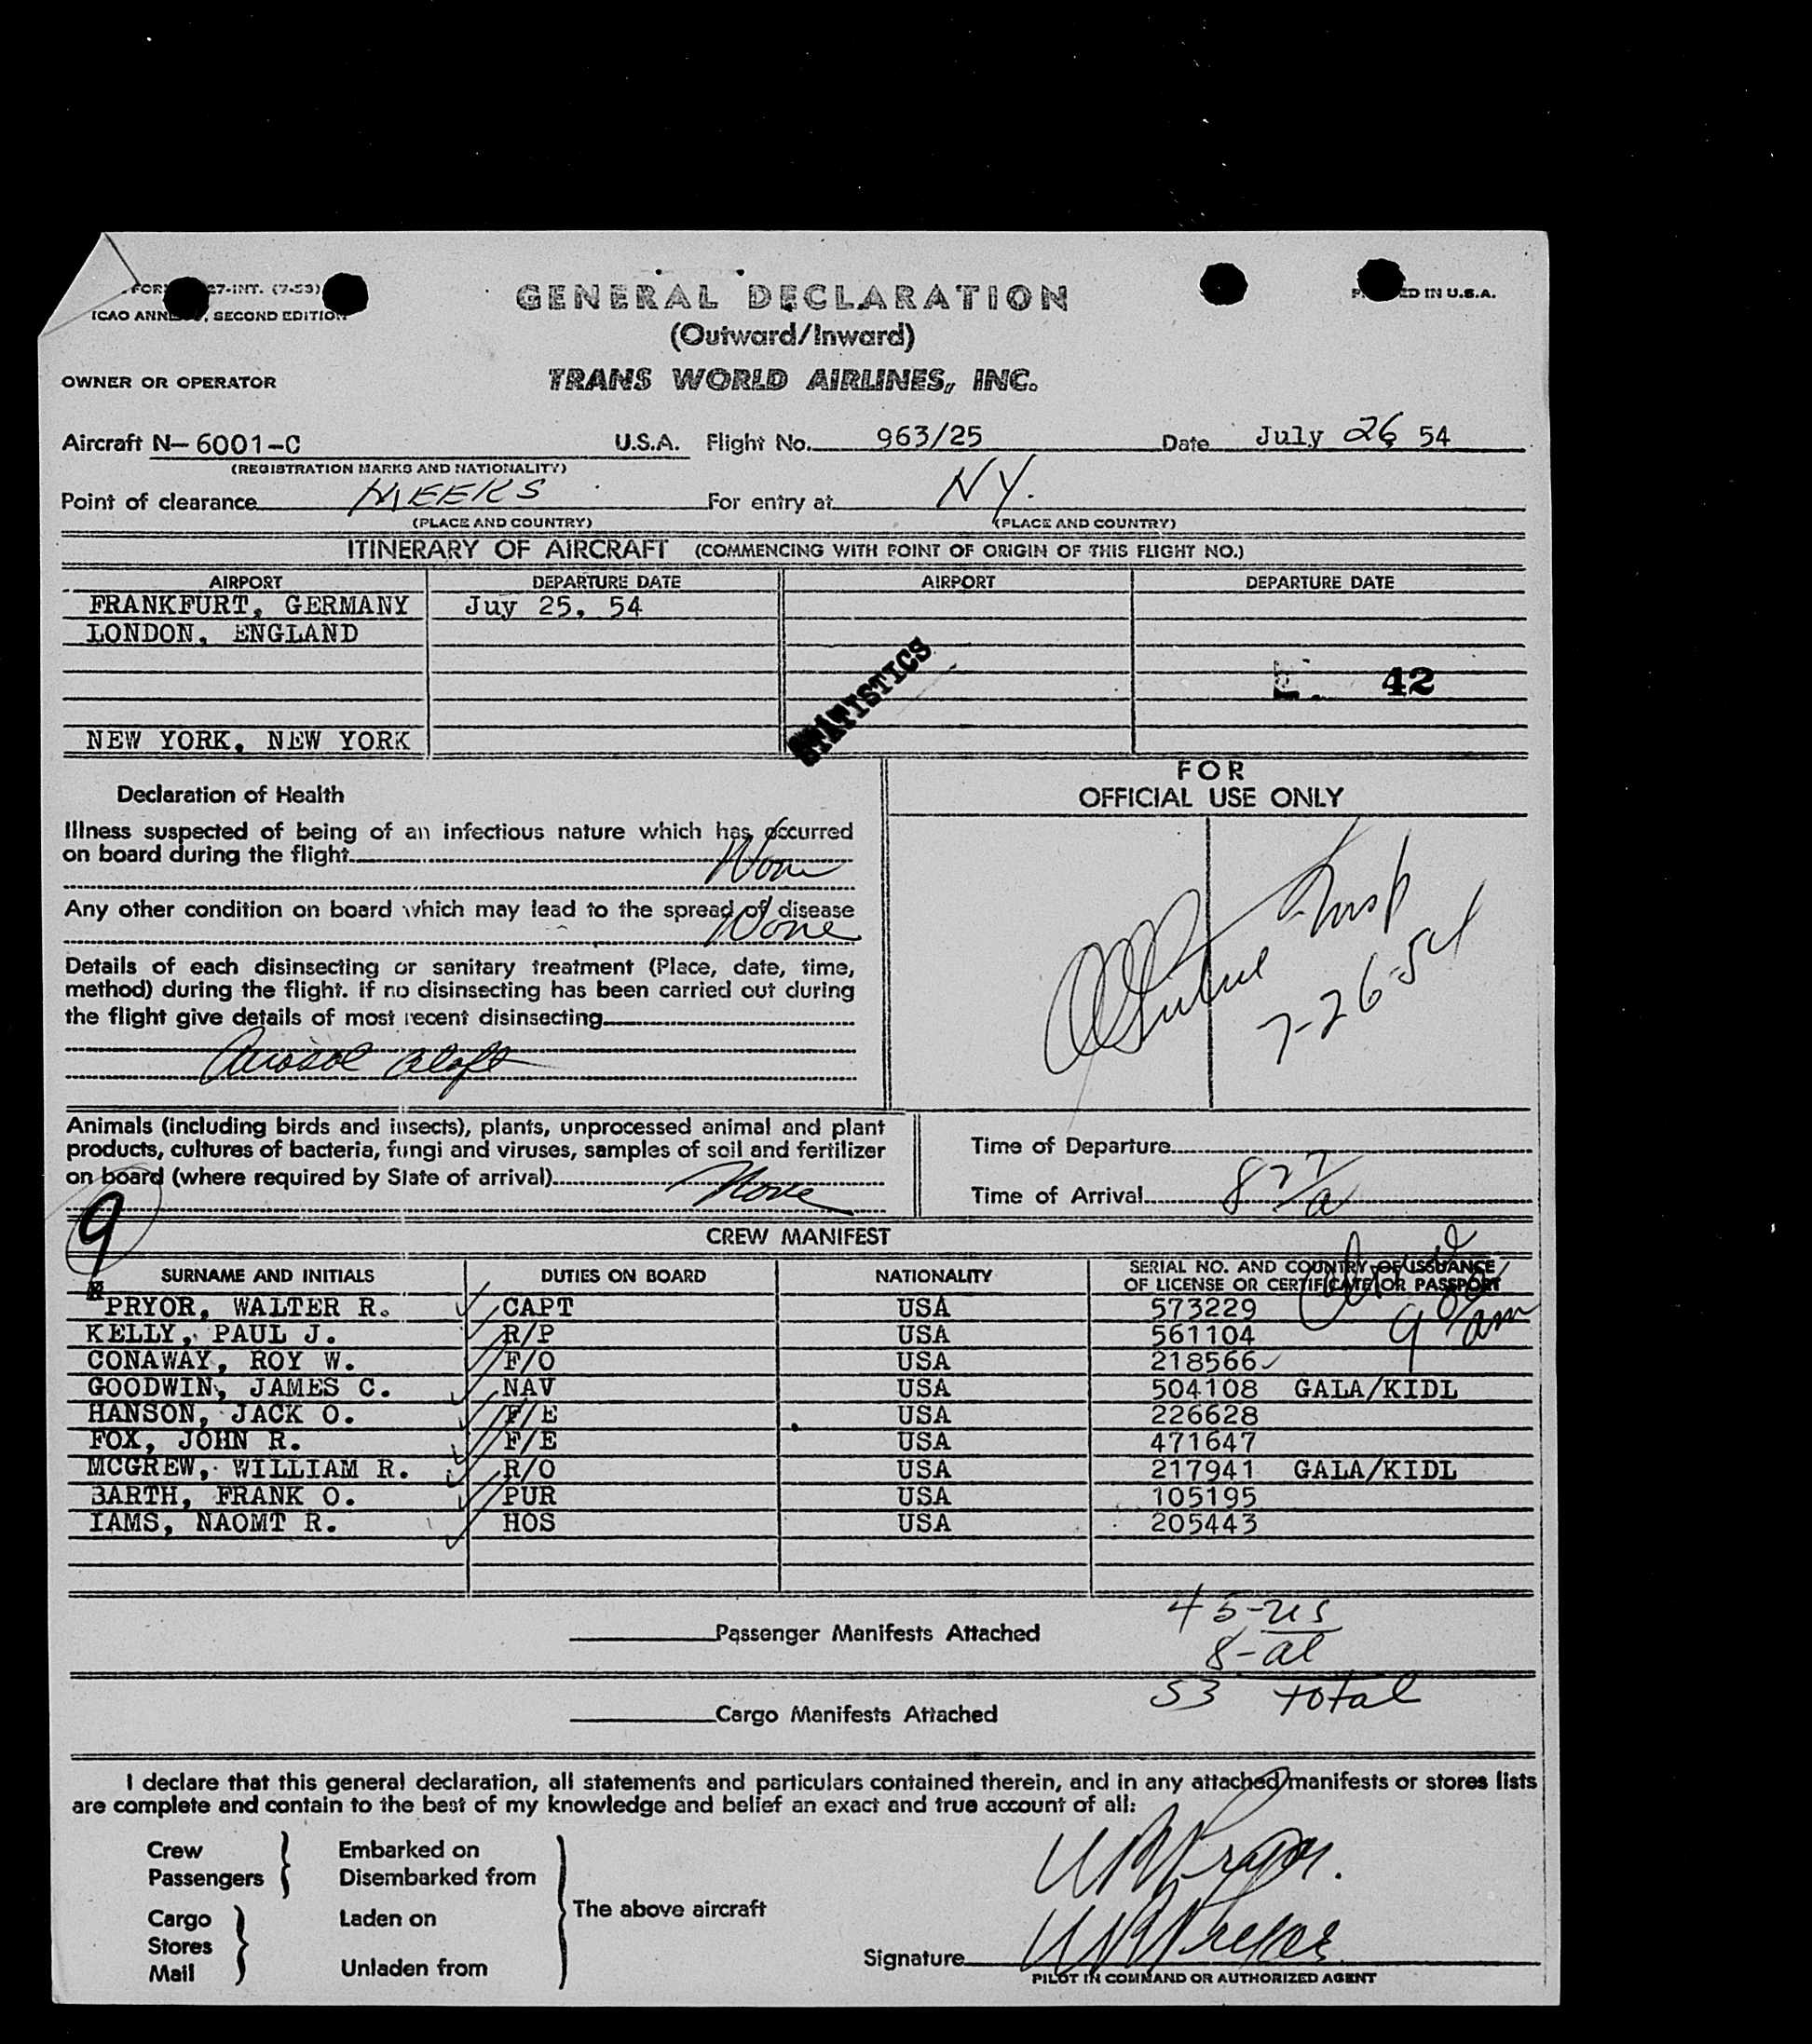 FORM 27-INT. (7-53)
ICAO ANNEX , SECOND EDITION
GENERAL DECLARATION
IN U.S.A.
(Outward/Inward)
OWNER OR OPERATOR
TRANS WORLD AIRLINES, INC.
Aircraft N- 6001-C U.S.A. Flight No. 963/25 Date July 26 54
(REGISTRATION MARKS AND NATIONALITY)
Point of clearance MEEKS For entry at NY.
(PLACE AND COUNTRY) (PLACE AND COUNTRY)
ITINERARY OF AIRCRAFT (COMMENCING WITH POINT OF ORIGIN OF THIS FLIGHT NO.)
AIRPORT DEPARTURE DATE AIRPORT DEPARTURE DATE
FRANKFURT, GERMANY Juy 25, 54
LONDON, ENGLAND
STATISTICS
42
NEW YORK, NEW YORK
FOR
OFFICIAL USE ONLY
Declaration of Health
Illness suspected of being of an infectious nature which has occurred
on board during the flight None
Any other condition on board which may lead to the spread of disease
None
Details of each disinsecting or sanitary treatment (Place, date, time,
method) during the flight. If no disinsecting has been carried out during
the flight give details of most recent disinsecting
Aerosol Aloft
Insp
7-26-54
Animals (including birds and insects), plants, unprocessed animal and plant
products, cultures of bacteria, fungi and viruses, samples of soil and fertilizer
on board (where required by State of arrival) None
Time of Departure
Time of Arrival 8 27/a
9
CREW MANIFEST
SURNAME AND INITIALS DUTIES ON BOARD NATIONALITY SERIAL NO. AND COUNTRY OF ISSUANCE
OF LICENSE OR CERTIFICATE OR PASSPORT
PRYOR, WALTER R. CAPT USA 573229
KELLY, PAUL J. R/P USA 561104
CONAWAY, ROY W. F/O USA 218566
GOODWIN, JAMES C. NAV USA 504108 GALA/KIDL
HANSON, JACK O. F/E USA 226628
FOX, JOHN R. F/E USA 471647
MCGREW, WILLIAM R. R/O USA 217941 GALA/KIDL
BARTH, FRANK O. PUR USA 105195
IAMS, NAOMT R. HOS USA 205443
45-us
Passenger Manifests Attached
8-al
53 total
Cargo Manifests Attached
I declare that this general declaration, all statements and particulars contained therein, and in any attached manifests or stores lists
are complete and contain to the best of my knowledge and belief an exact and true account of all:
Crew
Passengers
Embarked on
Disembarked from
Cargo
Stores
Mail
Laden on
Unladen from
The above aircraft
WR Pryor.
Signature WR Pryor
PILOT IN COMMAND OR AUTHORIZED AGENT